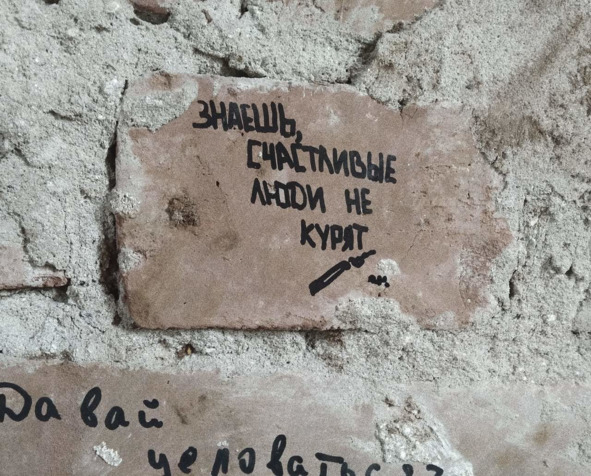 ЗНАЕШЬ,
СЧАСТЛИВЫЕ
ЛЮДИ НЕ
КУРЯТ
Давай
целоваться??